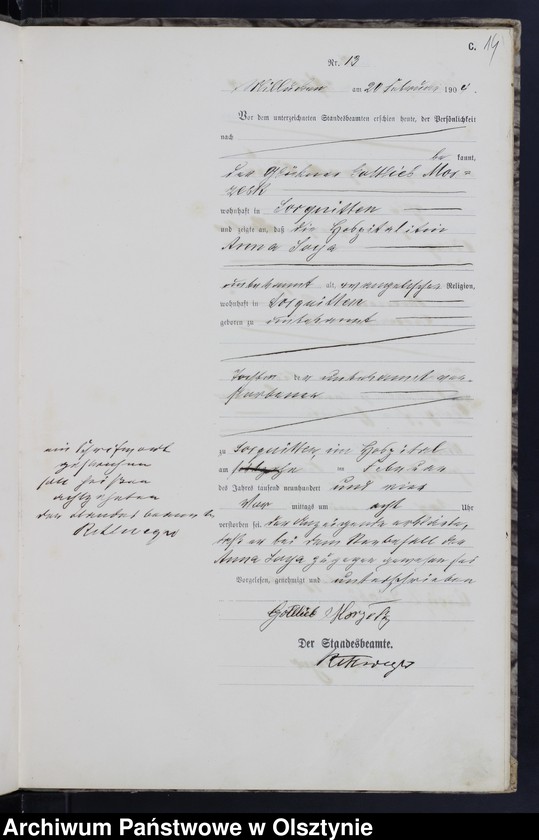 C. 14
Nr. 13
am 20 Februar 1904.
Vor dem unterzeichneten Standesbeamten erschien heute, der Persönlichkeit
nach
be kannt,
der Gottlieb Mor=
zeck
wohnhaft in Sorquitten
und zeigte an, daß die Hospitalitin
Anna
unbekannt alt, evangelischer Religion,
wohnhaft in Sorquitten
geboren zu unbekannt
Tochter der unbekannt ver-
storbenen
zu Sorquitten im Hospital
am ten Februar
des Jahres tausend neunhundert und vier
Vor mittags um acht Uhr
verstorben sei. der Anzeigende erklärte,
daß er bei dem Sterbefall der
Anna zugegen gewesen sei
Vorgelesen, genehmigt und unterschrieben
Gottlieb
Der Standesbeamte.
ein Schriftwort
gestrichen
soll heißen
achtzehnten
der Standesbeamte
Archiwum Państwowe w Olsztynie